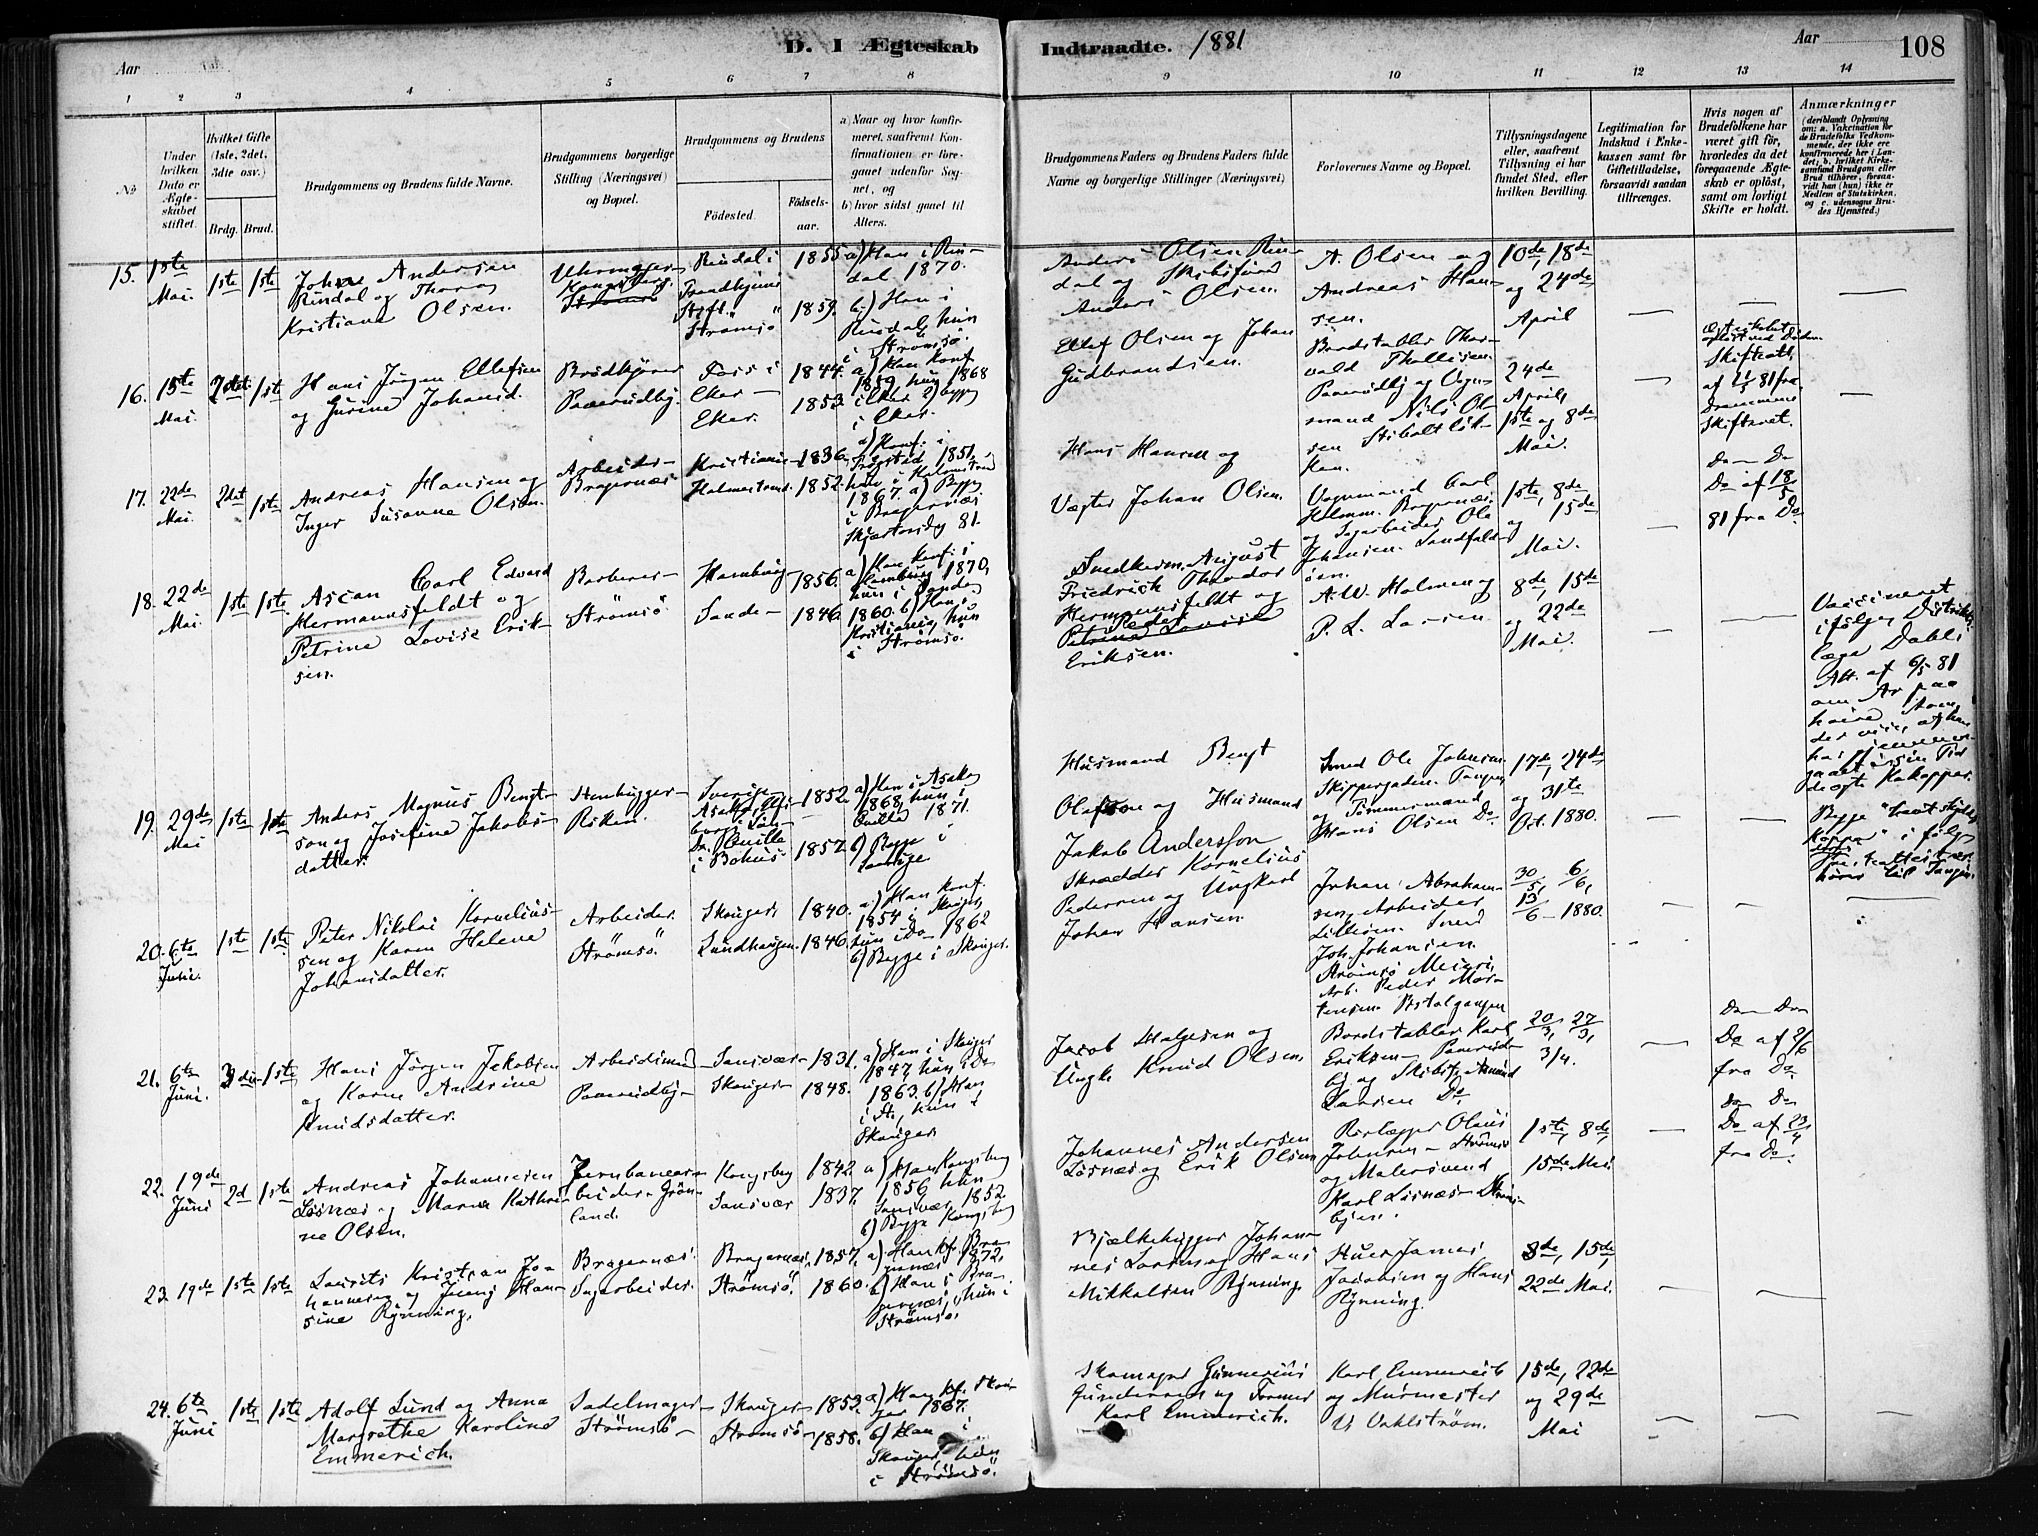 D. I Ægteskab Indtraadte. 1881
Aar
Aar
108
1 2 3 4 5 6 7 8 9 10 11 12 13 14
№
Under hvilken Dato er Ægteskabet stiftet.
Hvilket Gifte (1ste, 2det, 3die osv.)
Brdg. Brud.
Brudgommens og Brudens fulde Navne.
Brudgommens borgerlige Stilling (Næringsvei) og Bopæl.
Brudgommens og Brudens
Fødested.
Fødselsaar.
a) Naar og hvor konfirmeret, saafremt Konfirmationen er foregaaet udenfor Sognet, og
b) hvor sidst gaaet til Alters.
Brudgommens Faders og Brudens Faders fulde Navne og borgerlige Stillinger (Næringsvei)
Forlovernes Navne og Bopæl.
Tillysningsdagene eller, saafremt Tillysning ei har fundet Sted, efter hvilken Bevilling.
Legitimation for Indskud i Enkekassen samt for Giftetilladelse, forsaavidt saadan tiltrænges.
Hvis nogen af Brudefolkene har været gift før, hvorledes da det foregaaende Ægteskab er opløst, samt om lovligt Skifte er holdt.
Anmærkninger
(deriblandt Oplysning om: a. Vakcination for de Brudefolks Vedkommende, der ikke ere konfirmerede her i Landet; b. hvilket Kirkesamfund Brudgom eller Brud tilhører, forsaavidt han (hun) ikke er Medlem af Statskirken, og c. udensogns Brudes Hjemsted.)
15. 1ste Mai. 1ste 1ste
Johan Andersen
Rindal og Thora
Kristiane Olsen.
Uhrmager
Strømsø
Rindal i
Trondhjems
Stift.
Strømsø
1855
1859.
a) Han i Rindal 1870.
b) Han i
Rindal, hun
i Strømsø.
Anders Olsen Rindal og
Anders Olsen.
A. Olsen og
Andreas Hansen.
10de, 18de
og 24de
April
16. 15te Mai. 2det 1ste
Hans Jørgen Ellefsen
og Gurine Johansd.
Brødkjører
Pauerudby.
Foss i
Eker
Eker.
1844.
1853.
a) Han konf.
1859, hun 1868
i Eker b) begge
i Eker.
Ellef Olsen og Johan
Gudbrandsen.
Bordstabler Thorvald Thollesen
Pauerudby og Vognmand Nils Olsen
24de
April,
1ste og 8de
Mai.
opløst ved Døden.
Skifteatt.
af 11/5 81 fra
Drammens
Skifteret.
17. 22de Mai. 2det 1ste
Andreas Hansen og
Inger Susanne Olsen.
Arbeider
Bragernæs
Kristiania
Holmestrand.
1836.
1852.
a) Konf. i
1851,
hun i Holmestrand
1867. b) Begge
i Bragernæs
Hans Hansen og
Vægter Johan Olsen.
Vognmand Carl
Holmm. Bragernæs
og Sagarbeider Ole
Johansen.
1ste, 8de
og 15de
Mai.
Do Do
Do af 18/5
81 fra Do
18. 22de Mai. 1ste 1ste
Ascan Carl Edvard
Hermannsfeldt og
Petrine Lovise Eriksen.
Barberer
Strømsø.
Hamburg
Sande
1856.
1846.
a) Han konf. i
Hamburg 1870,
hun i Sande
1860. b) Han i
Kristiania, hun
i Strømsø.
Snedkerm. August
Friedrich Theodor
Hermannsfeldt og
Peder
Petrine Lovise
Eriksen.
A. W. Holmen og
P. L. Larsen.
8de, 15de
og 22de
Mai.
Vaccineret
ifølge Distriktslæge Dahls
Att. af 6/5 81
om Ar paa
19. 29de Mai 1ste 1ste
Anders Magnus Bengtson og Josefine Jakobsdatter.
Stenhugger
Røken.
Sverige
i Bohus
1852.
1857.
a) Han i Asaka
1868, hun i
1871.
b) Begge i
Sverige
Husmand Bengt
Olafson og Husmand
Jakob Andersson
Smed Ole Johnsen
Skippergaden Tangen
og Tømmermand
Hans Olsen Do
17de, 24de
og 31te
Oct. 1880.
Begge
20. 6te Juni. 1ste 1ste
Peter Nikolai Korneliussen og Karen Helene
Johansdatter.
Arbeider.
Strømsø.
Skoger,
Sundhaugen.
1840.
1846.
a) Han konf.
1854 i Skoger,
hun i Do 1862
b) Begge i Skoger.
Skrædder Kornelius
Pedersen og Ungkarl
Johan Hansen.
Johan Abrahamsen, Arbeider
Smed
Joh. Johansen.
Strømsø
Arb. Peder Mortensen.
30/5, 6/6,
13/6 – 1880.
21. 6te Juni. 3die 1ste
Hans Jørgen Jakobsen
og Karen Andrine
Knudsdatter.
Arbeidsmand
Pauerudby
Sansvær
Skoger
1831.
1848.
a) Han i Skoger
1847, hun i Do
1863. b) Han
i St., hun i
Skoger.
Jacob Halvsen og
Ungk. Knud Olsen.
Bordstabler Karl
Eriksen Pauerudby og
Larsen Do
20/3, 27/3,
3/4.
Do Do
Do af 2/6
fra Do.
22. 19de Juni 2d 1ste
Andreas Johannesen
Løsnæs og Maren Kathrine Olsen.
Jernbanearbeider Grønland.
Kongsberg
Sansvær
1842
1837.
a) Han Kongsberg
1856 hun
Sansvær 1852.
b) Begge Kongsberg
Johannes Andersen
Løsnæs og Erik Olsen
Olaus
Johnsen Strømsø
og Malersvend
Karl Løsnæs
1ste, 8de,
15de Mai.
Do Do
Do af 23/4
fra Do.
23. 19de 1ste 1ste
Laurits Kristian Johannesen og Jenny Hansine Rynning.
Bragernæs.
Sagarbeider.
Bragernæs,
Strømsø.
1857.
1860.
a) Han kf. Bragernæs 1872,
b) Han i Bragernæs, hun i
Strømsø.
Bjælkehugger Johannes Larsen og Hans
Mikkelsen Rynning
James
Jacobsen og Hans
Rynning.
8de, 15de,
22de Mai.
24. 6te Juni 1ste 1ste
Adolf Lund og Anna
Margrethe Karoline
Emmerich.
Sadelmager
Strømsø
Skoger
Strømsø
1853.
1858.
a) Han kf. Skoger 1867.
b) Han i
Skoger, hun
i Strømsø.
Skomager Gunnerius
Gundersen og Former
Karl Emmerich.
Karl Emmerich
og Murmester
Vahlstrøm.
15de, 22de
og 29de
Mai